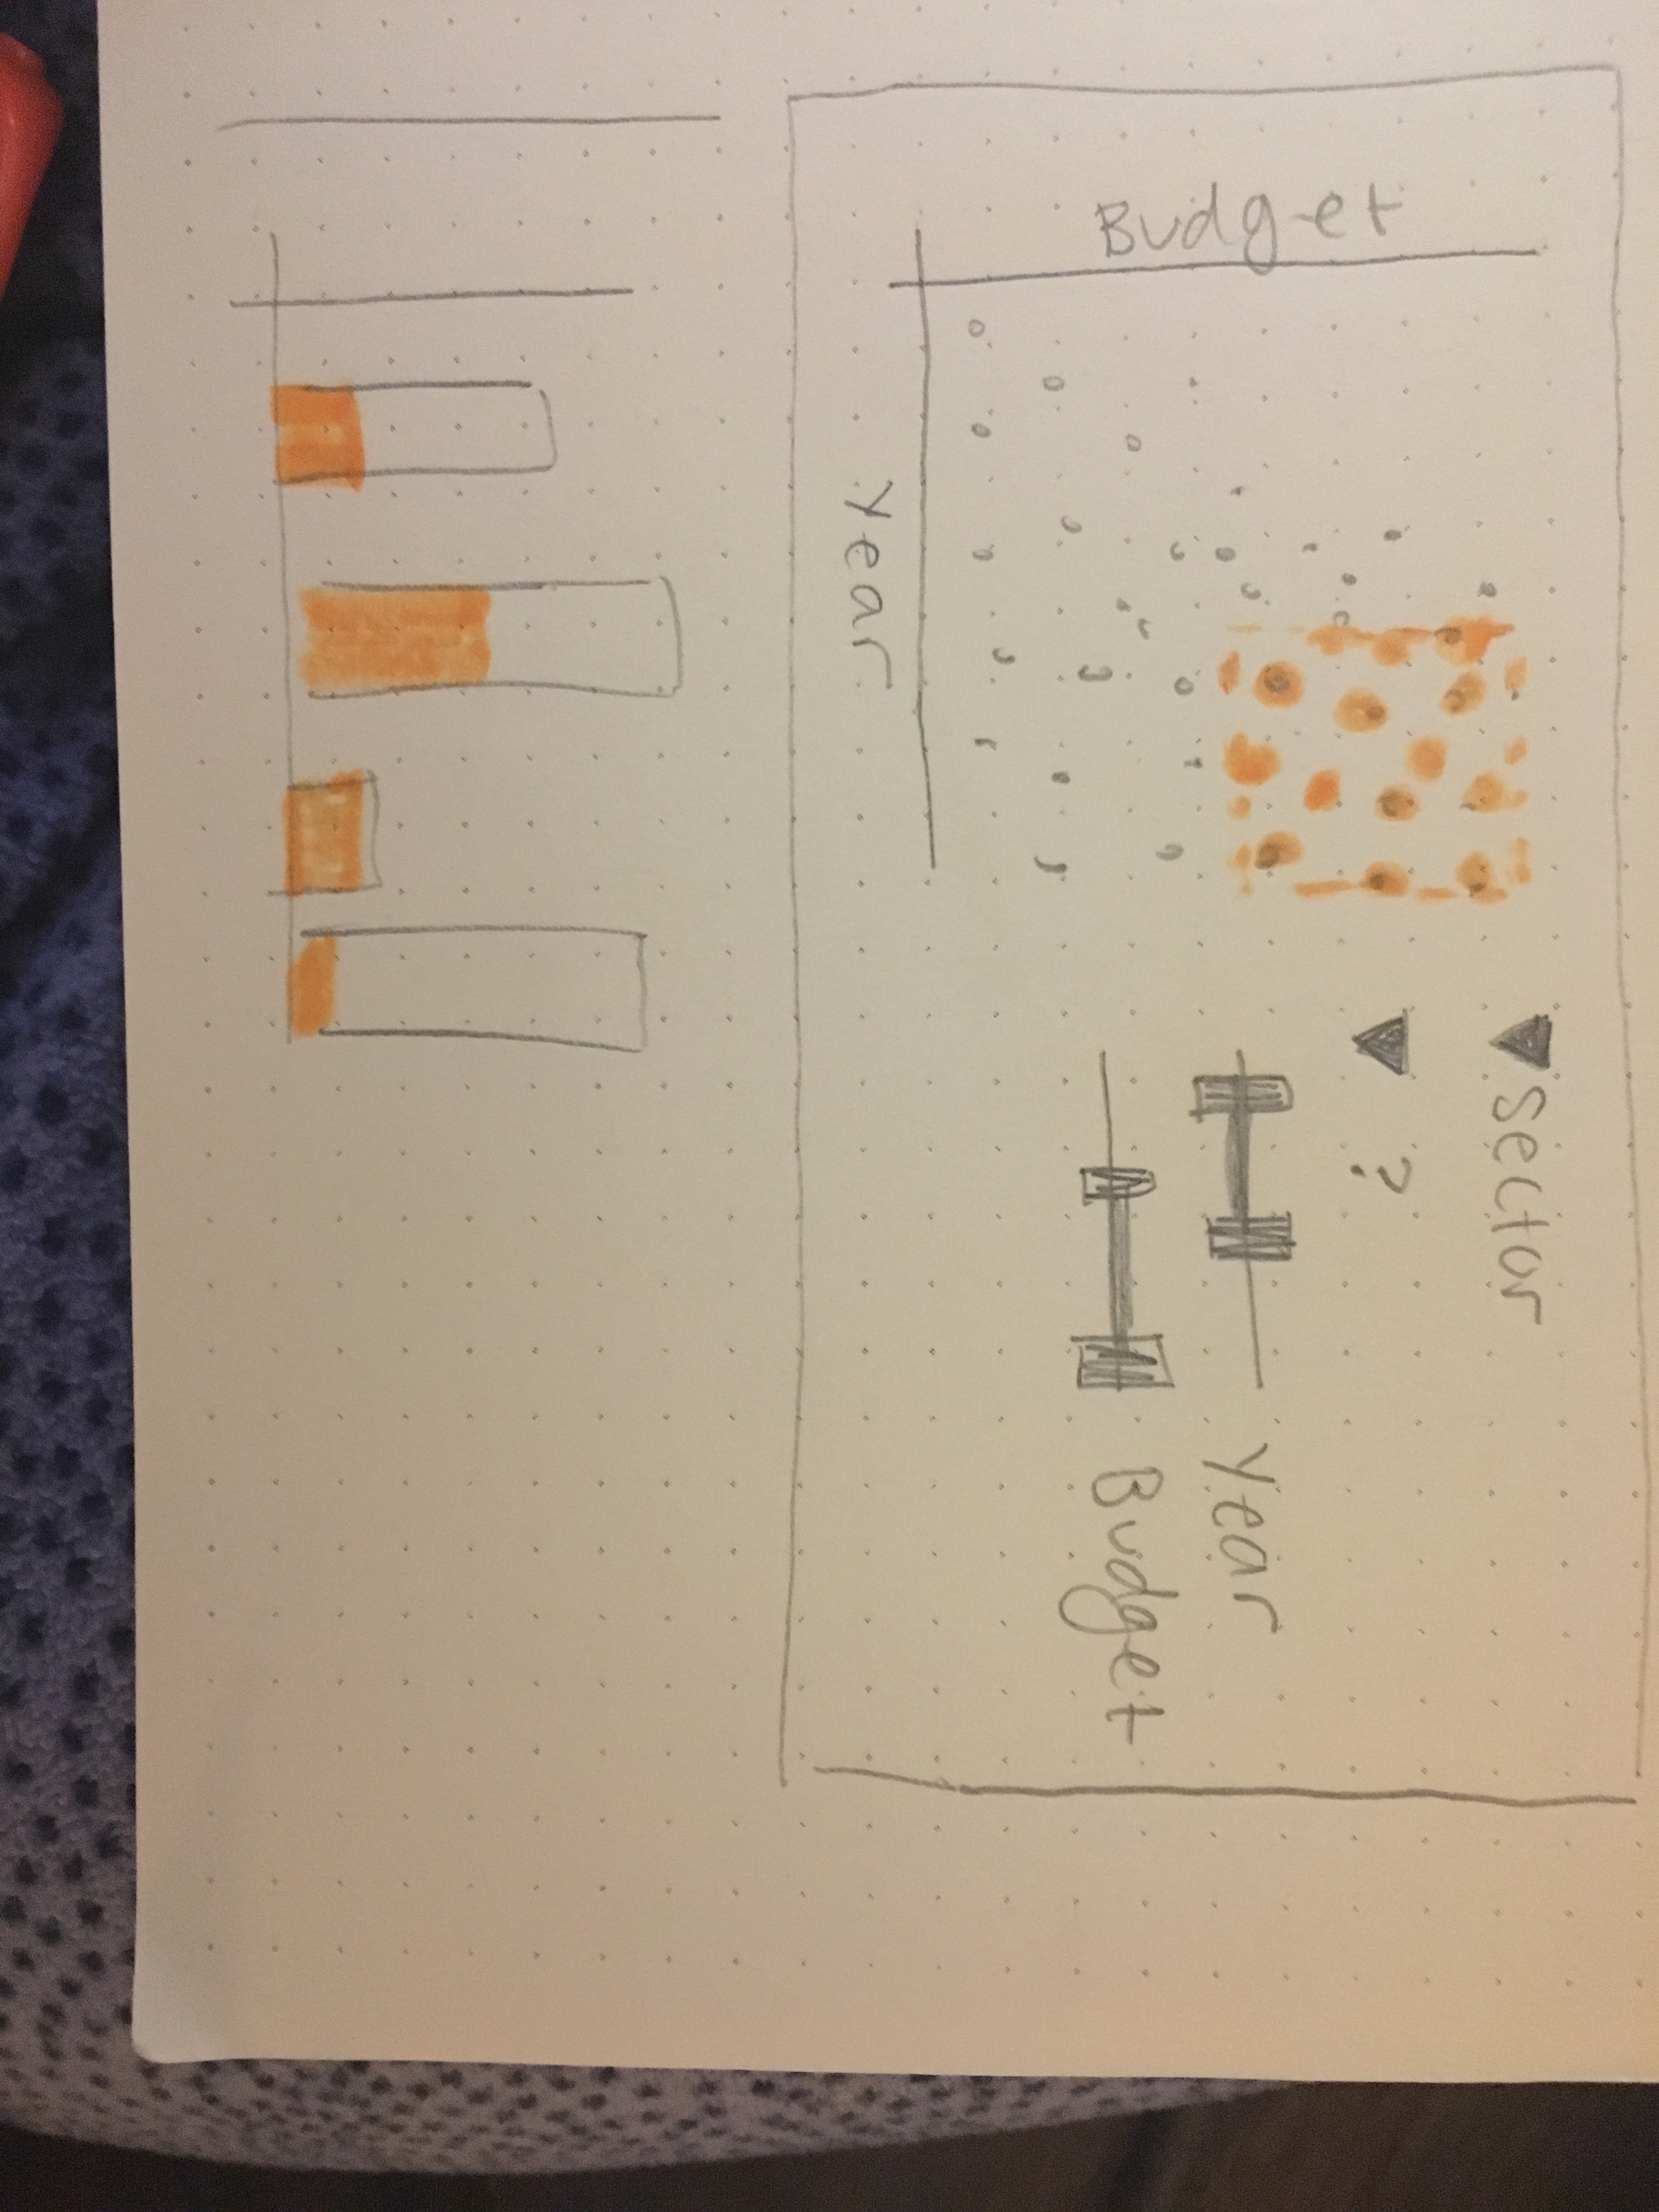 Budget
Year
Sector
?
Year
Budget